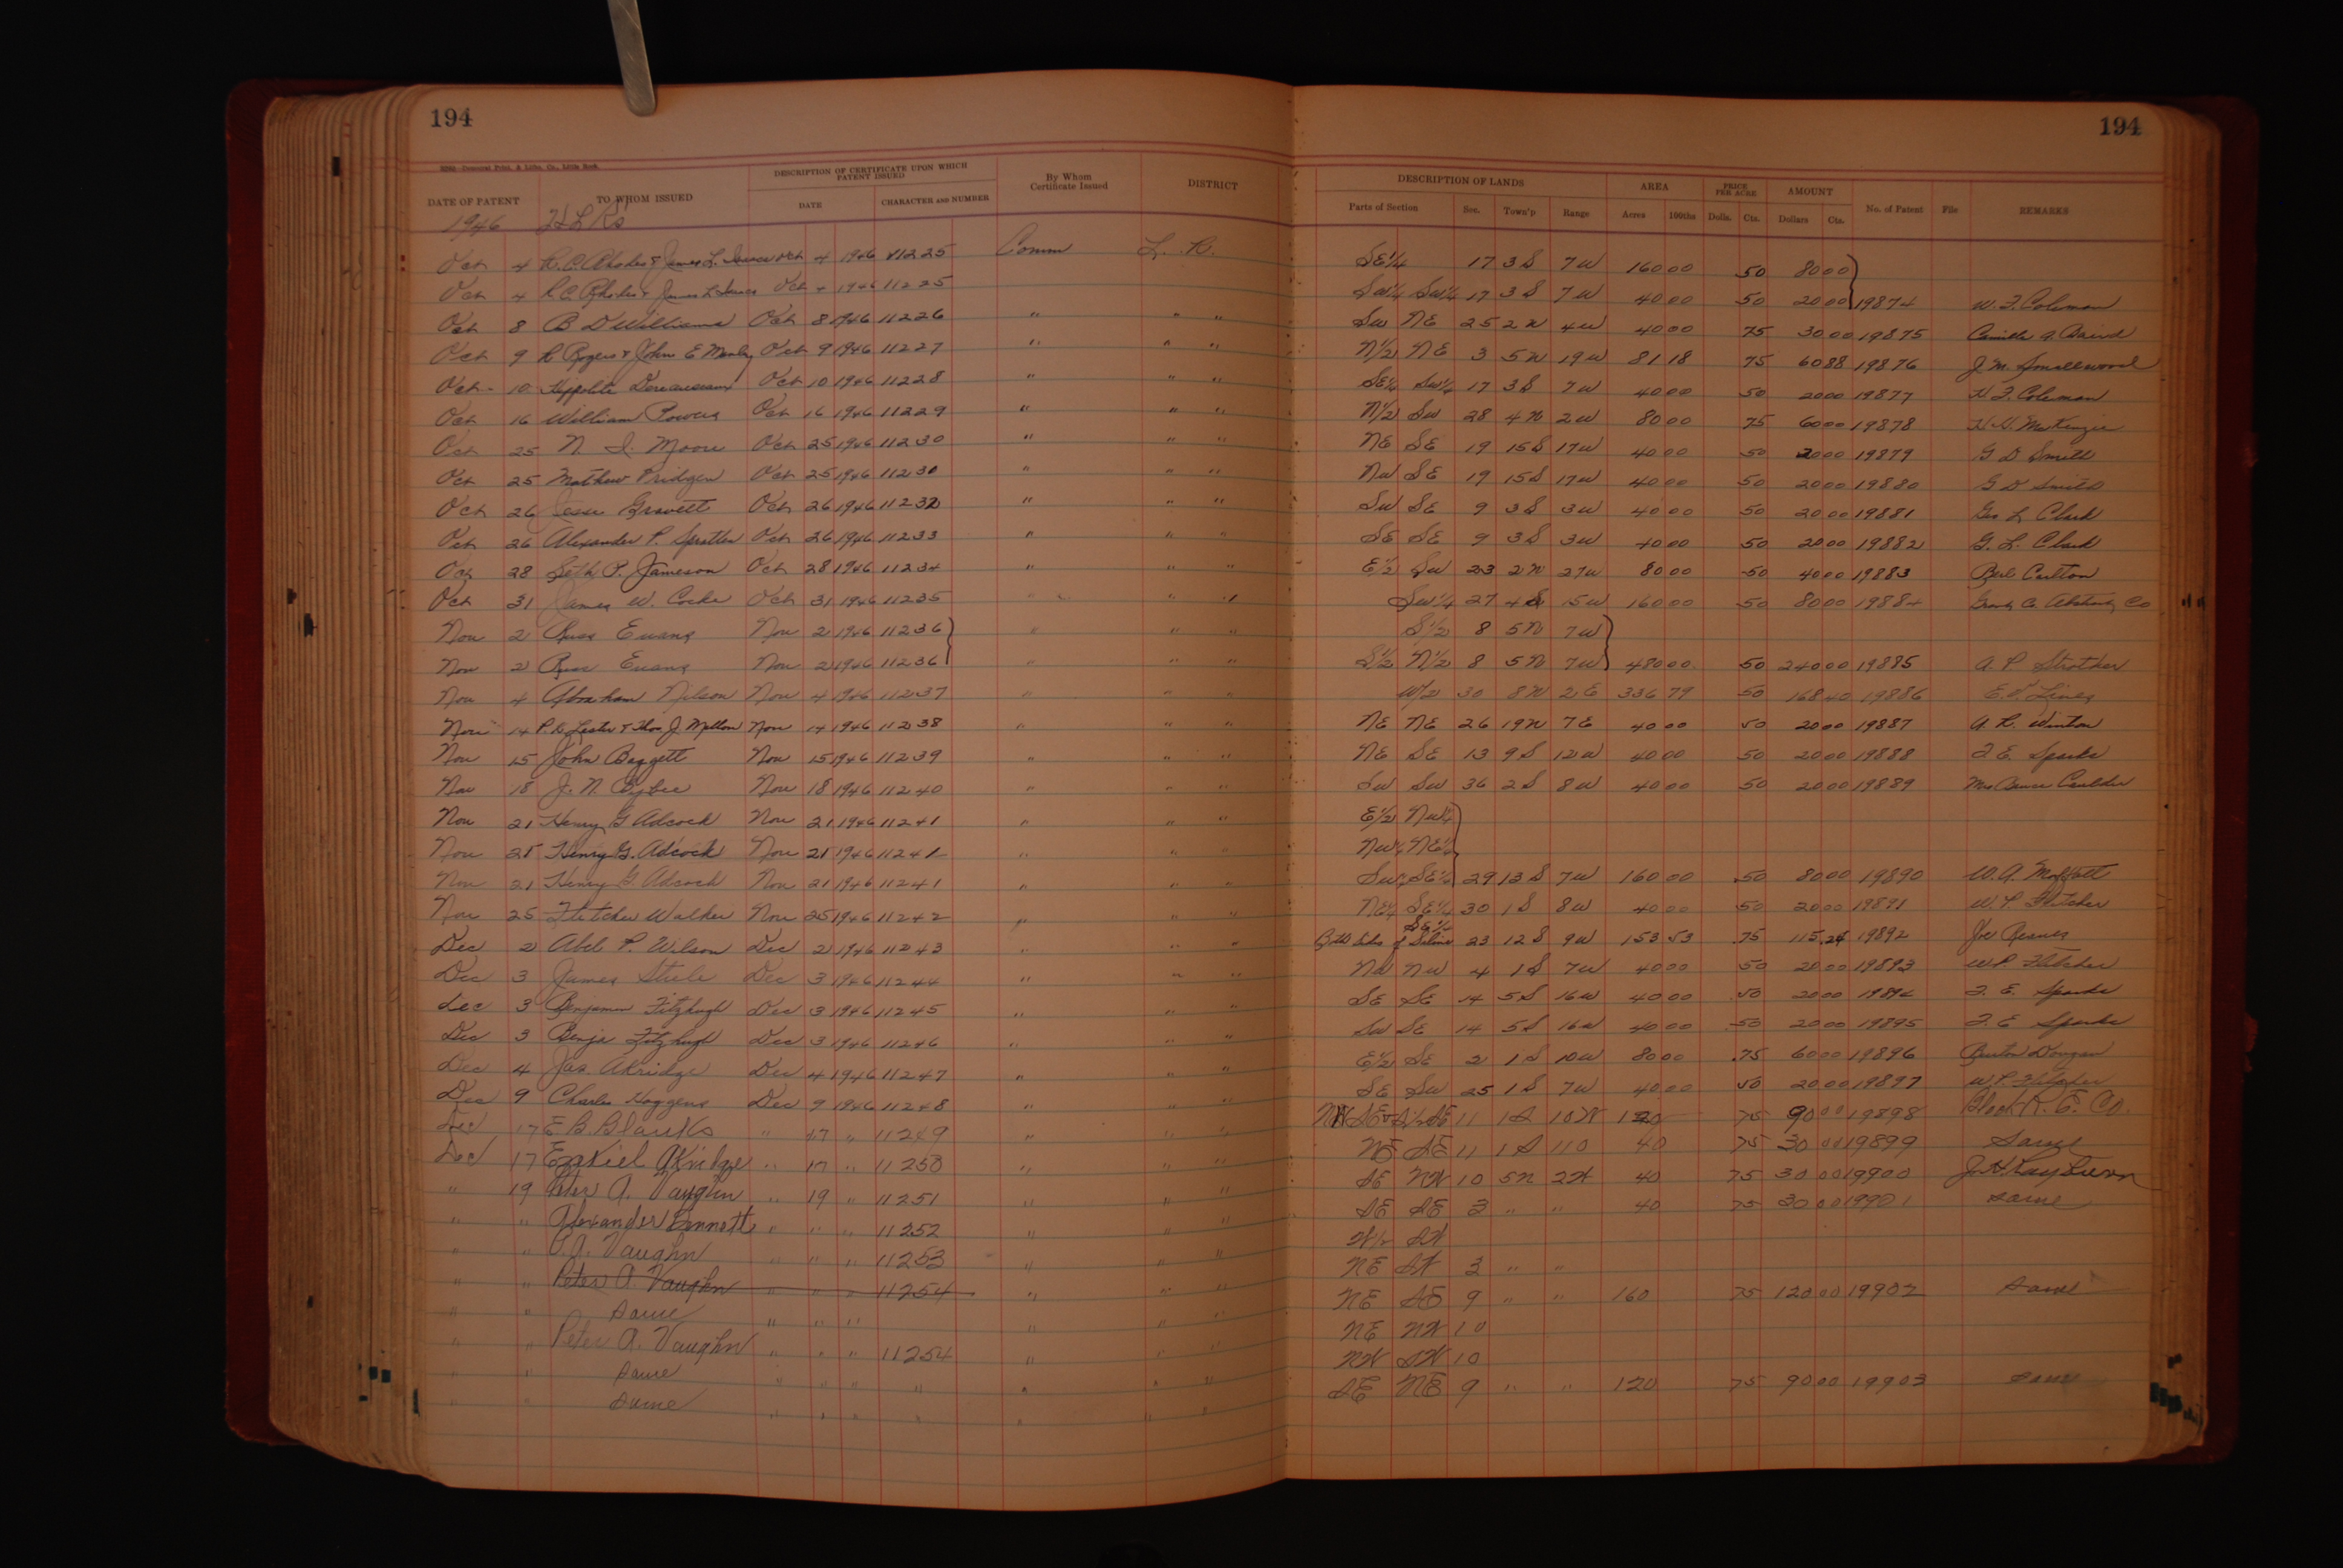 194
194
DESCRIPTION OF CERTIFICATE UPON WHICH PATENT ISSUED
DATE OF PATENT TO WHOM ISSUED DATE CHARACTER AND NUMBER By Whom Certificate Issued DISTRICT
DESCRIPTION OF LANDS AREA PRICE PER ACRE AMOUNT
Parts of Section Sec. Town'p Range Acres 100ths Dolls. Cts. Dollars Cts. No. of Patent File REMARKS
1946
Oct 4 R. C. Rhodes & James L. Oct 4 1946 11225 Comm L. R. SE¼ 17 3S 7W 160 00 50 80 00
Oct 4 R C Rhodes & James L Oct 4 1946 11225 SW¼ SW¼ 17 3S 7W 40 00 50 20 00 19874 W. F. Coleman
Oct 8 B D Williams Oct 8 1946 11226 " " " SW NE 25 2N 4W 40 00 75 30 00 19875 Camille A. Baird
Oct 9 R Rogers & John E Manley Oct 9 1946 11227 " " " N½ NE 3 5N 19W 81 18 75 60 88 19876 J. M. Smallwood
Oct 10 Hippolite Oct 10 1946 11228 " " " SE¼ SW¼ 17 3S 7W 40 00 50 20 00 19877 Coleman
Oct 16 William Powers Oct 16 1946 11229 " " " N½ SW 28 4N 2W 80 00 75 60 00 19878 McKenzie
Oct 25 N. Moore Oct 25 1946 11230 " " " NE SE 19 15S 17W 40 00 50 20 00 19879 G D Smith
Oct 25 Mathew Pridgen Oct 25 1946 " " " NW SE 19 15S 17W 40 00 50 20 00 19880 G D Smith
Oct 26 Jesse Gravett Oct 26 1946 11232 " " " SW SE 9 3S 3W 40 00 50 20 00 19881 Geo L Clark
Oct 26 Alexander P. Oct 26 1946 11233 " " " SE SE 9 3S 3W 40 00 50 20 00 19882 G. L. Clark
Oct 28 Seth P. Jameson Oct 28 1946 11234 " " " E½ SW 23 2N 27W 80 00 50 40 00 19883 Carlton
Oct 31 James W. Cocke Oct 31 1946 11235 " " " SW¼ 27 4S 15W 160 00 50 80 00 19884 Co
Nov 2 Evans Nov 2 1946 11236 " " " S½ 8 5N 7W
Nov 2 Evans Nov 2 1946 11236 " " " S½ N½ 8 5N 7W 480 00 50 240 00 19885 A. P. Strother
Nov 4 Abraham Nilson Nov 4 1946 11237 " " " W½ 30 8N 2E 336 79 50 168 40 19886 Lines
Nov 14 Lester & Thos J. Mellon Nov 14 1946 11238 " " " NE NE 26 19N 7E 40 00 50 20 00 19887 A. R. Winton
Nov 15 John Baggett Nov 15 1946 11239 " " " NE SE 13 9S 12W 40 00 50 20 00 19888 Sparks
Nov 18 J. N. Bybee Nov 18 1946 11240 " " " SW SW 36 2S 8W 40 00 50 20 00 19889 Mrs
Nov 21 Henry G Adcock Nov 21 1946 11241 " " " E½ NW¼
Nov 21 Henry G. Adcock Nov 21 1946 11241 " " " NW¼ NE¼
Nov 21 Henry G. Adcock Nov 21 1946 11241 " " " SW¼ SE¼ 29 13S 7W 160 00 .50 80 00 19890 W. A. Moffatt
Nov 25 Fletcher Walker Nov 25 1946 11242 " " " NE¼ SE¼ 30 1S 8W 40 00 50 20 00 19891 W. P. Fletcher
Dec 2 Abel P. Wilson Dec 2 1946 11243 " " " Both Sides of Saline 23 12S 9W 153 53 .75 115.24 19892 Joe Reaves
Dec 3 James Steele Dec 3 1946 11244 " " " NW NW 4 1S 7W 40 00 50 20 00 19893 W P. Fletcher
Dec 3 Benjamin Fitzhugh Dec 3 1946 11245 " " " SE SE 14 5S 16W 40 00 .50 20 00 Sparks
Dec 3 Benja Fitzhugh Dec 3 1946 11246 " " " SW SE 14 5S 16W 40 00 50 20 00 19895 Sparks
Dec 4 Jas. Akridge Dec 4 1946 11247 " " " E½ SE 2 1S 10W 80 00 .75 60 00 19896 Burton
Dec 9 Charles Hoggens Dec 9 1946 11248 " " " SE SW 25 1S 7W 40 00 50 20 00 19897 W P. Fletcher
Dec 17 E. B. Blanks " 17 " 11249 " " " 11 1S 10W 120 75 90 00 19898 Block R. E. Co.
Dec 17 Ezekiel Akridge " 17 " 11250 " " " NE SE 11 1S 110 40 75 30 00 19899 Same
" 19 Peter A. Vaughn " 19 " 11251 " " " SE NW 10 5N 2W 40 75 30 00 19900 J. H. Rayburn
" " Alexander Bennett " " " 11252 " " " SE SE 3 " " 40 75 30 00 19901 Same
" " Vaughn " " " 11253 " " " W½ SW
" " Peter A. Vaughn " " " 11254 " " " NE SW 3 " "
" " Same " " " " " " NE SE 9 " " 160 75 120 00 19902 Same
" " Peter A. Vaughn " " " 11254 " " " NE NW 10
" " Same " " " " " " " NW SW 10
" " Same " " " " " " " SE NE 9 " " 120 75 90 00 19903 Same